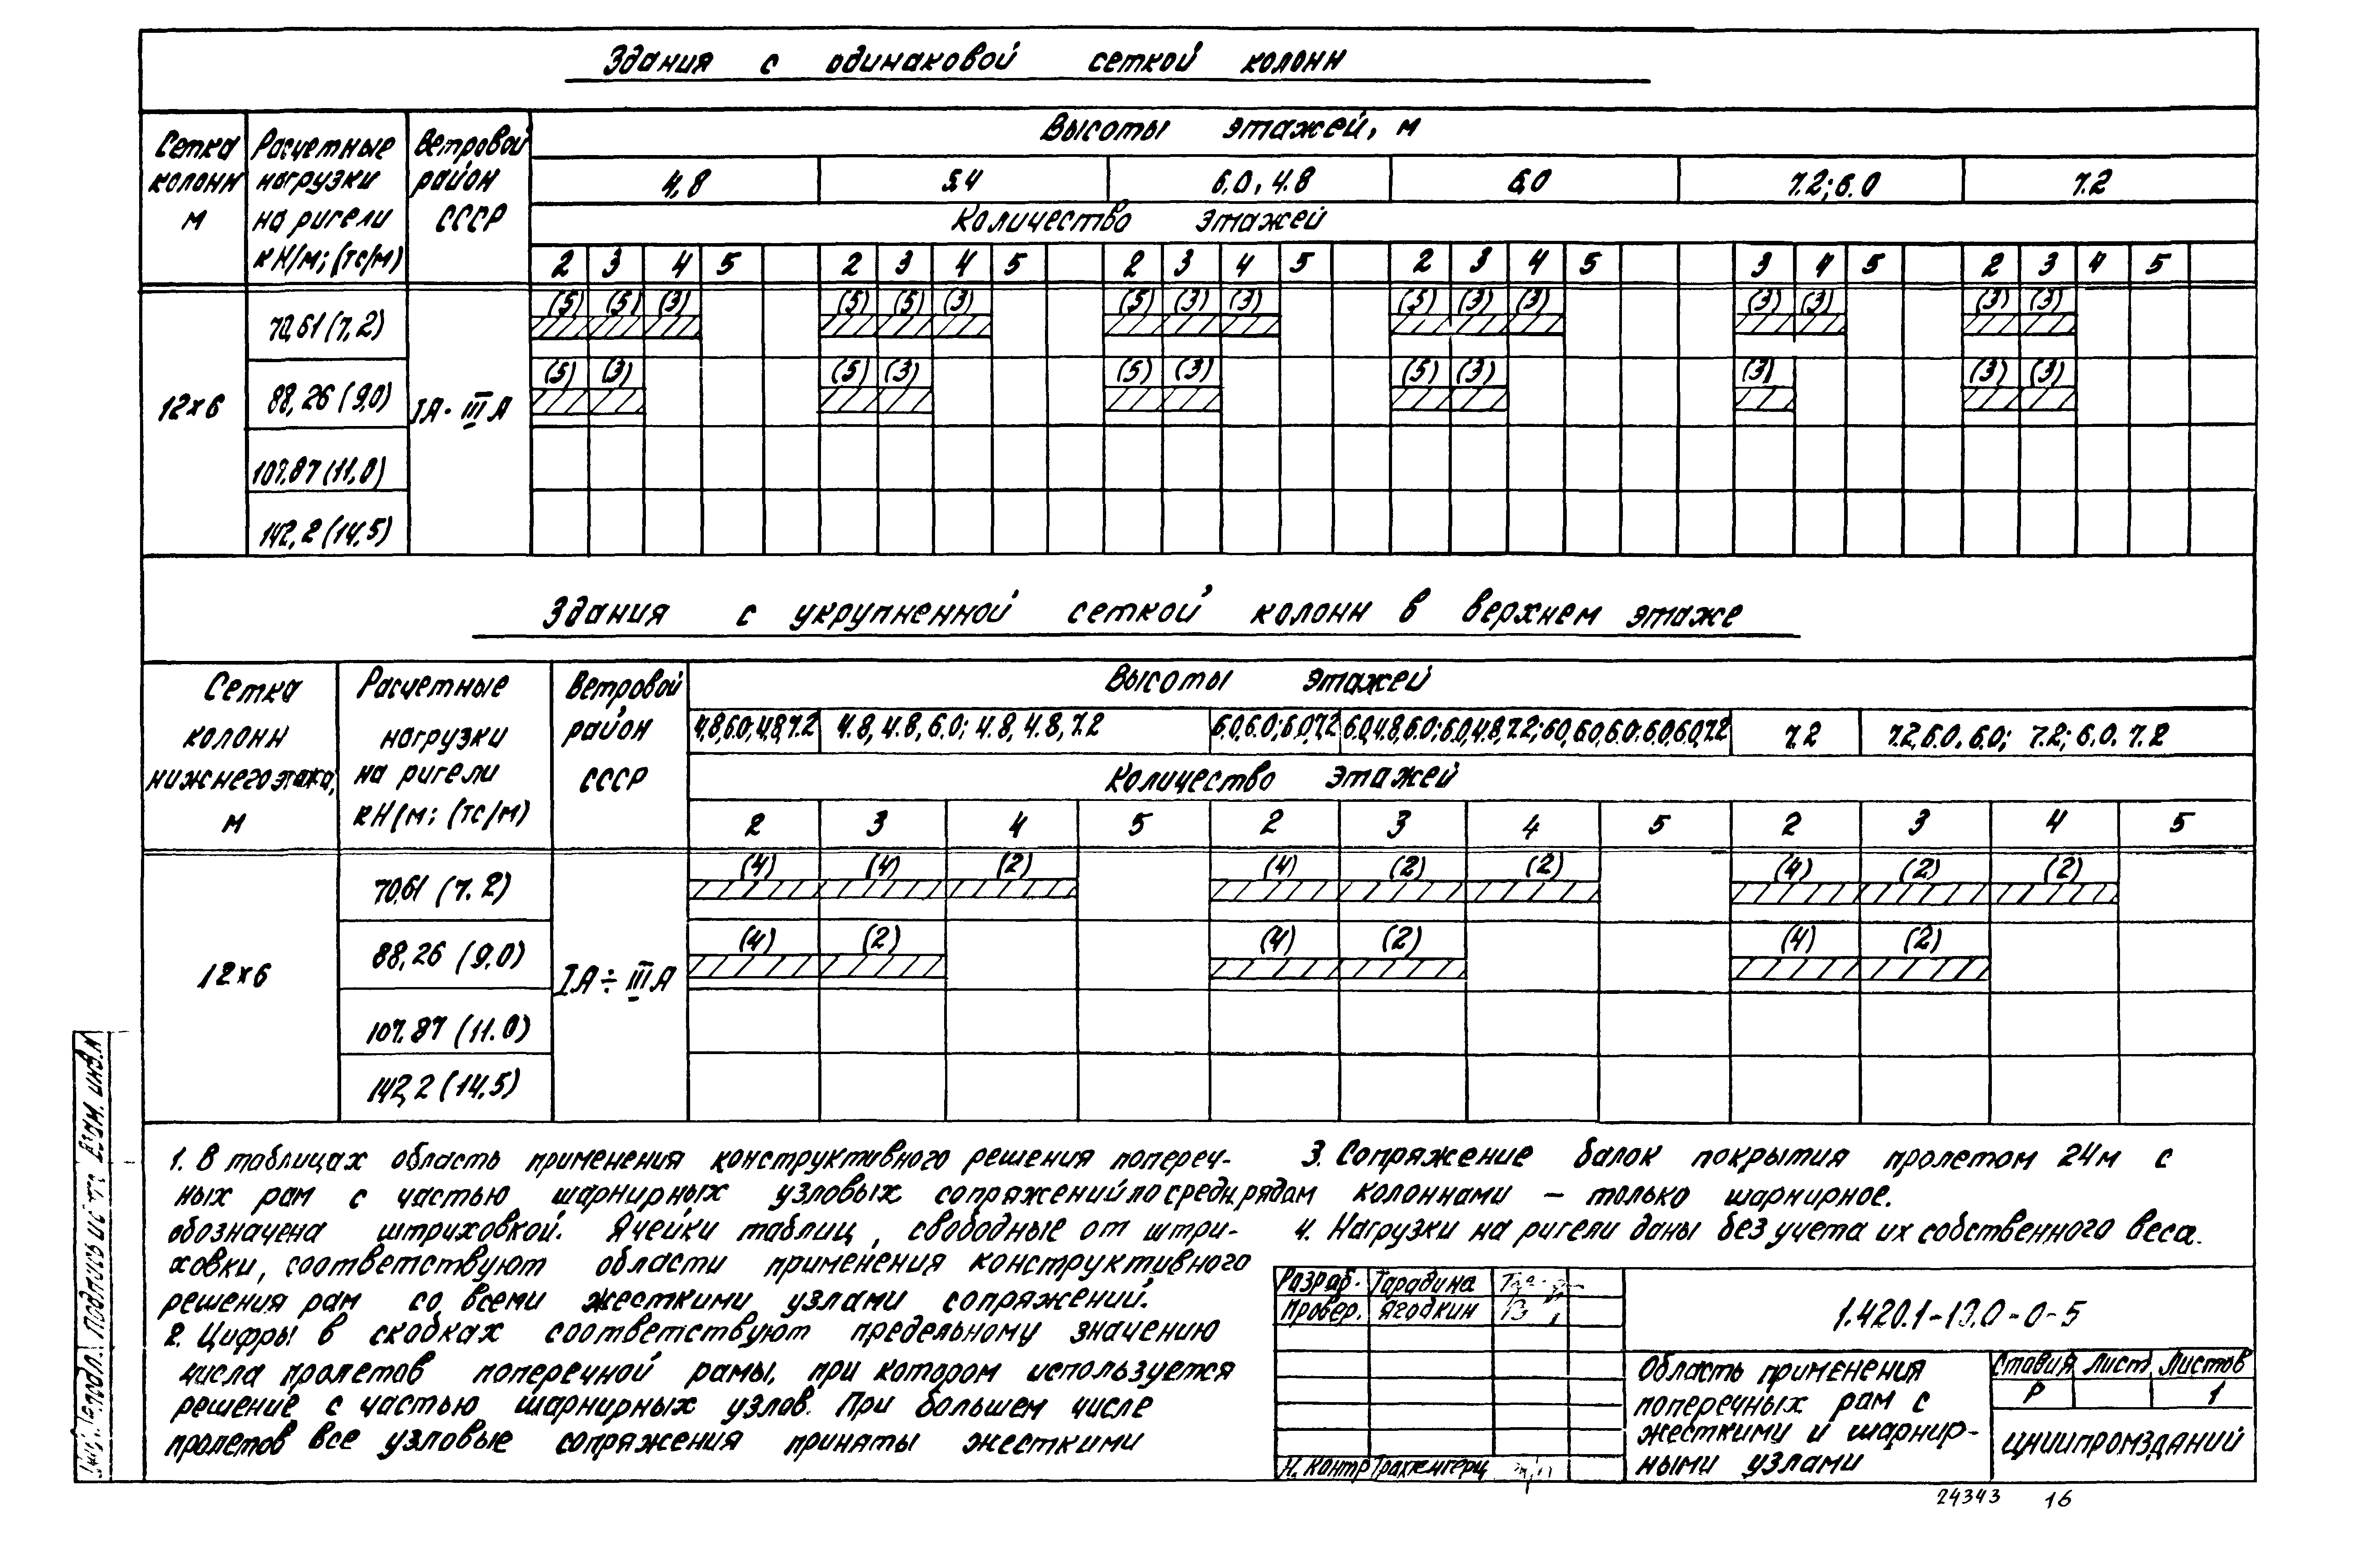 Здания с одинаковой сеткой колонн
Сетка колонн м
Расчетные нагрузки на ригели кН/м; (тс/м)
Ветровой район СССР
Высоты этажей, м
4,8 5.4 6.0, 4.8 6.0 7.2; 6.0 7.2
Количество этажей
2 3 4 5 2 3 4 5 2 3 4 5 2 3 4 5 3 4 5 2 3 4 5
12×6
IA · IIIA
70,61 (7,2) (5) (5) (3) (5) (5) (3) (5) (3) (3) (5) (3) (3) (3) (3) (3) (3)
88,26 (9,0) (5) (3) (5) (3) (5) (3) (5) (3) (3) (3) (3)
107.87 (11,0)
142,2 (14,5)
Здания с укрупненной сеткой колонн в верхнем этаже
Сетка колонн нижнего этажа, м
Расчетные нагрузки на ригели кН/м; (тс/м)
Ветровой район СССР
Высоты этажей
4,8,6.0; 4,8,7.2 4.8, 4.8, 6.0; 4.8, 4.8, 7.2 6.0,6.0; 6.0,7.2 6.0,4.8,6.0; 6.0,4.8,7.2; 6.0,6.0,6.0; 6.0,6.0,7.2 7.2 7.2, 6.0, 6.0; 7.2; 6.0, 7.2
Количество этажей
2 3 4 5 2 3 4 5 2 3 4 5
12×6
IA ÷ IIIA
70,61 (7.2) (4) (4) (2) (4) (2) (2) (4) (2) (2)
88,26 (9,0) (4) (2) (4) (2) (4) (2)
107.87 (11.0)
142,2 (14,5)
1. В таблицах область применения конструктивного решения попереч-
ных рам с частью шарнирных узловых сопряжений по средн. рядам
обозначена штриховкой. Ячейки таблиц, свободные от штри-
ховки, соответствуют области применения конструктивного
решения рам со всеми жесткими узлами сопряжений.
2. Цифры в скобках соответствуют предельному значению
числа пролетов поперечной рамы, при котором используется
решение с частью шарнирных узлов. При большем числе
пролетов все узловые сопряжения приняты жесткими
3. Сопряжение балок покрытия пролетом 24м с
колоннами – только шарнирное.
4. Нагрузки на ригели даны без учета их собственного веса.
Разраб. Тарадина
Провер. Ягодкин
Н. Контр Трахтенгерц
1.420.1-19.0-0-5
Область применения
поперечных рам с
жесткими и шарнир-
ными узлами
Стадия Лист Листов
Р 1
ЦНИИПРОМЗДАНИЙ
Подпись и Взам. инв.N
24343 16